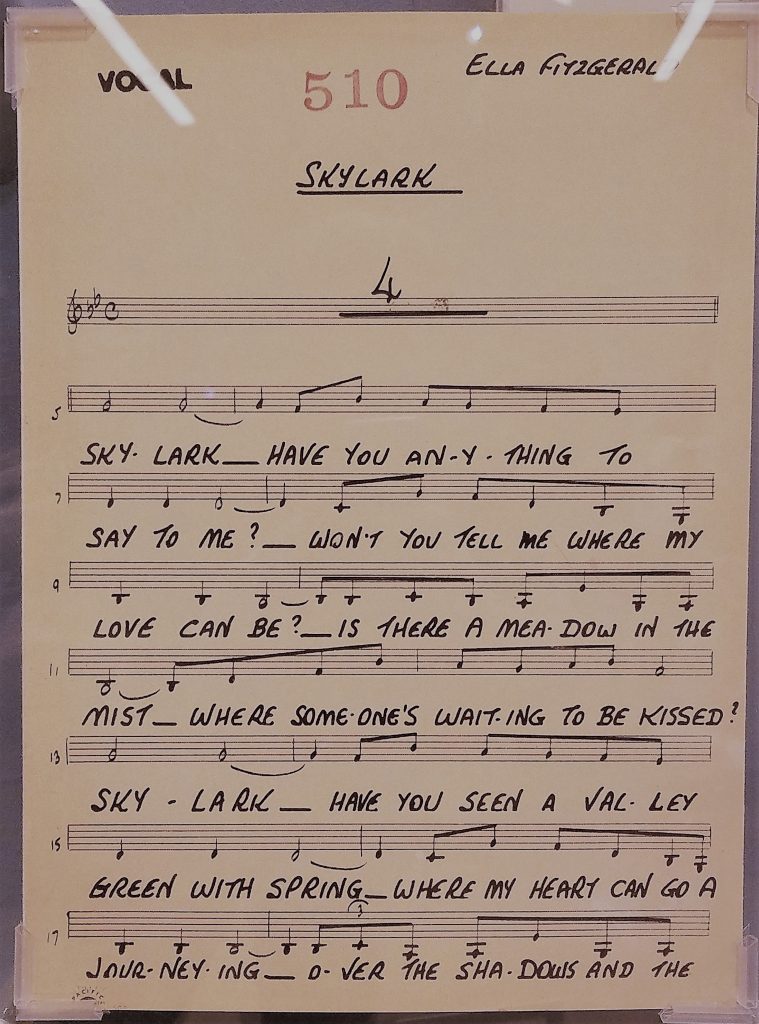 VOCAL
510
ELLA FITZGERALD
SKYLARK
4
5
SKY- LARK__ HAVE YOU AN-Y-THING TO
7
SAY TO ME?__ WON'T YOU TELL ME WHERE MY
9
LOVE CAN BE?__IS THERE A MEA-DOW IN THE
11
MIST__ WHERE SOME-ONE'S WAIT-ING TO BE KISSED?
13
SKY - LARK __ HAVE YOU SEEN A VAL-LEY
15
GREEN WITH SPRING__WHERE MY HEART CAN GO A
3
17
JOUR-NEY-ING__ O-VER THE SHA-DOWS AND THE